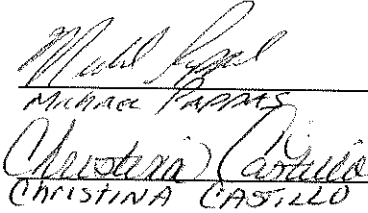 Michael Pappas
MICHAEL PAPPAS
Christina Castillo
CHRISTINA CASTILLO